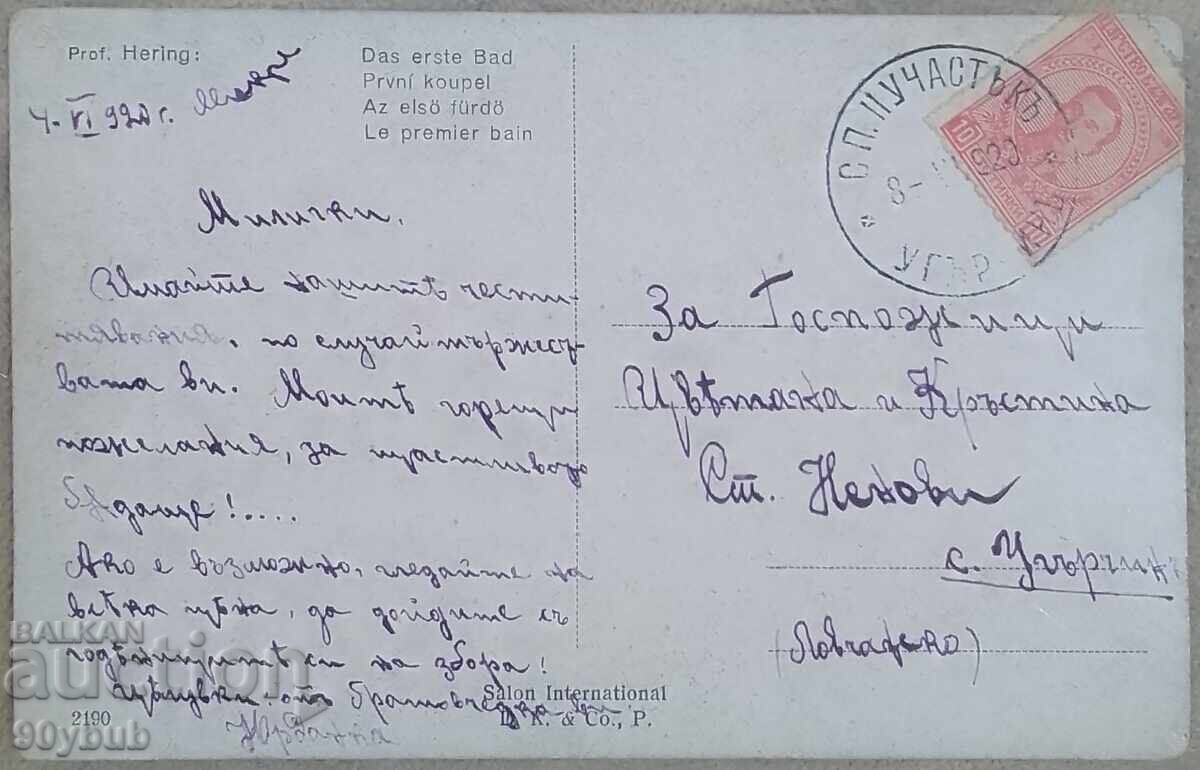 Prof. Hering:
Das erste Bad
První koupel
Az elsö fürdö
Le premier bain
4. VI 920 г.
Милички,
Имайте нашитѣ чести-
тявания, по случай тържест-
вата ви. Моитѣ горещи
пожелания, за щастливо
бѫдаще!....
Ако е възможно, гледайте на
всѣка цѣна, да дойдите съ
годѣницитѣ си на збора!
Цѣлувки отъ братовчедка ви
Salon International
K. & Co., P.
2190
СП. П УЧАСТЪКЪ
УГЪР
8-
920
10
За Госпожици
Цвѣтана и Кръстина
Ст. Ненови
с. Угърчинъ
(Ловчанско)
BALKAN
auction
90ybub